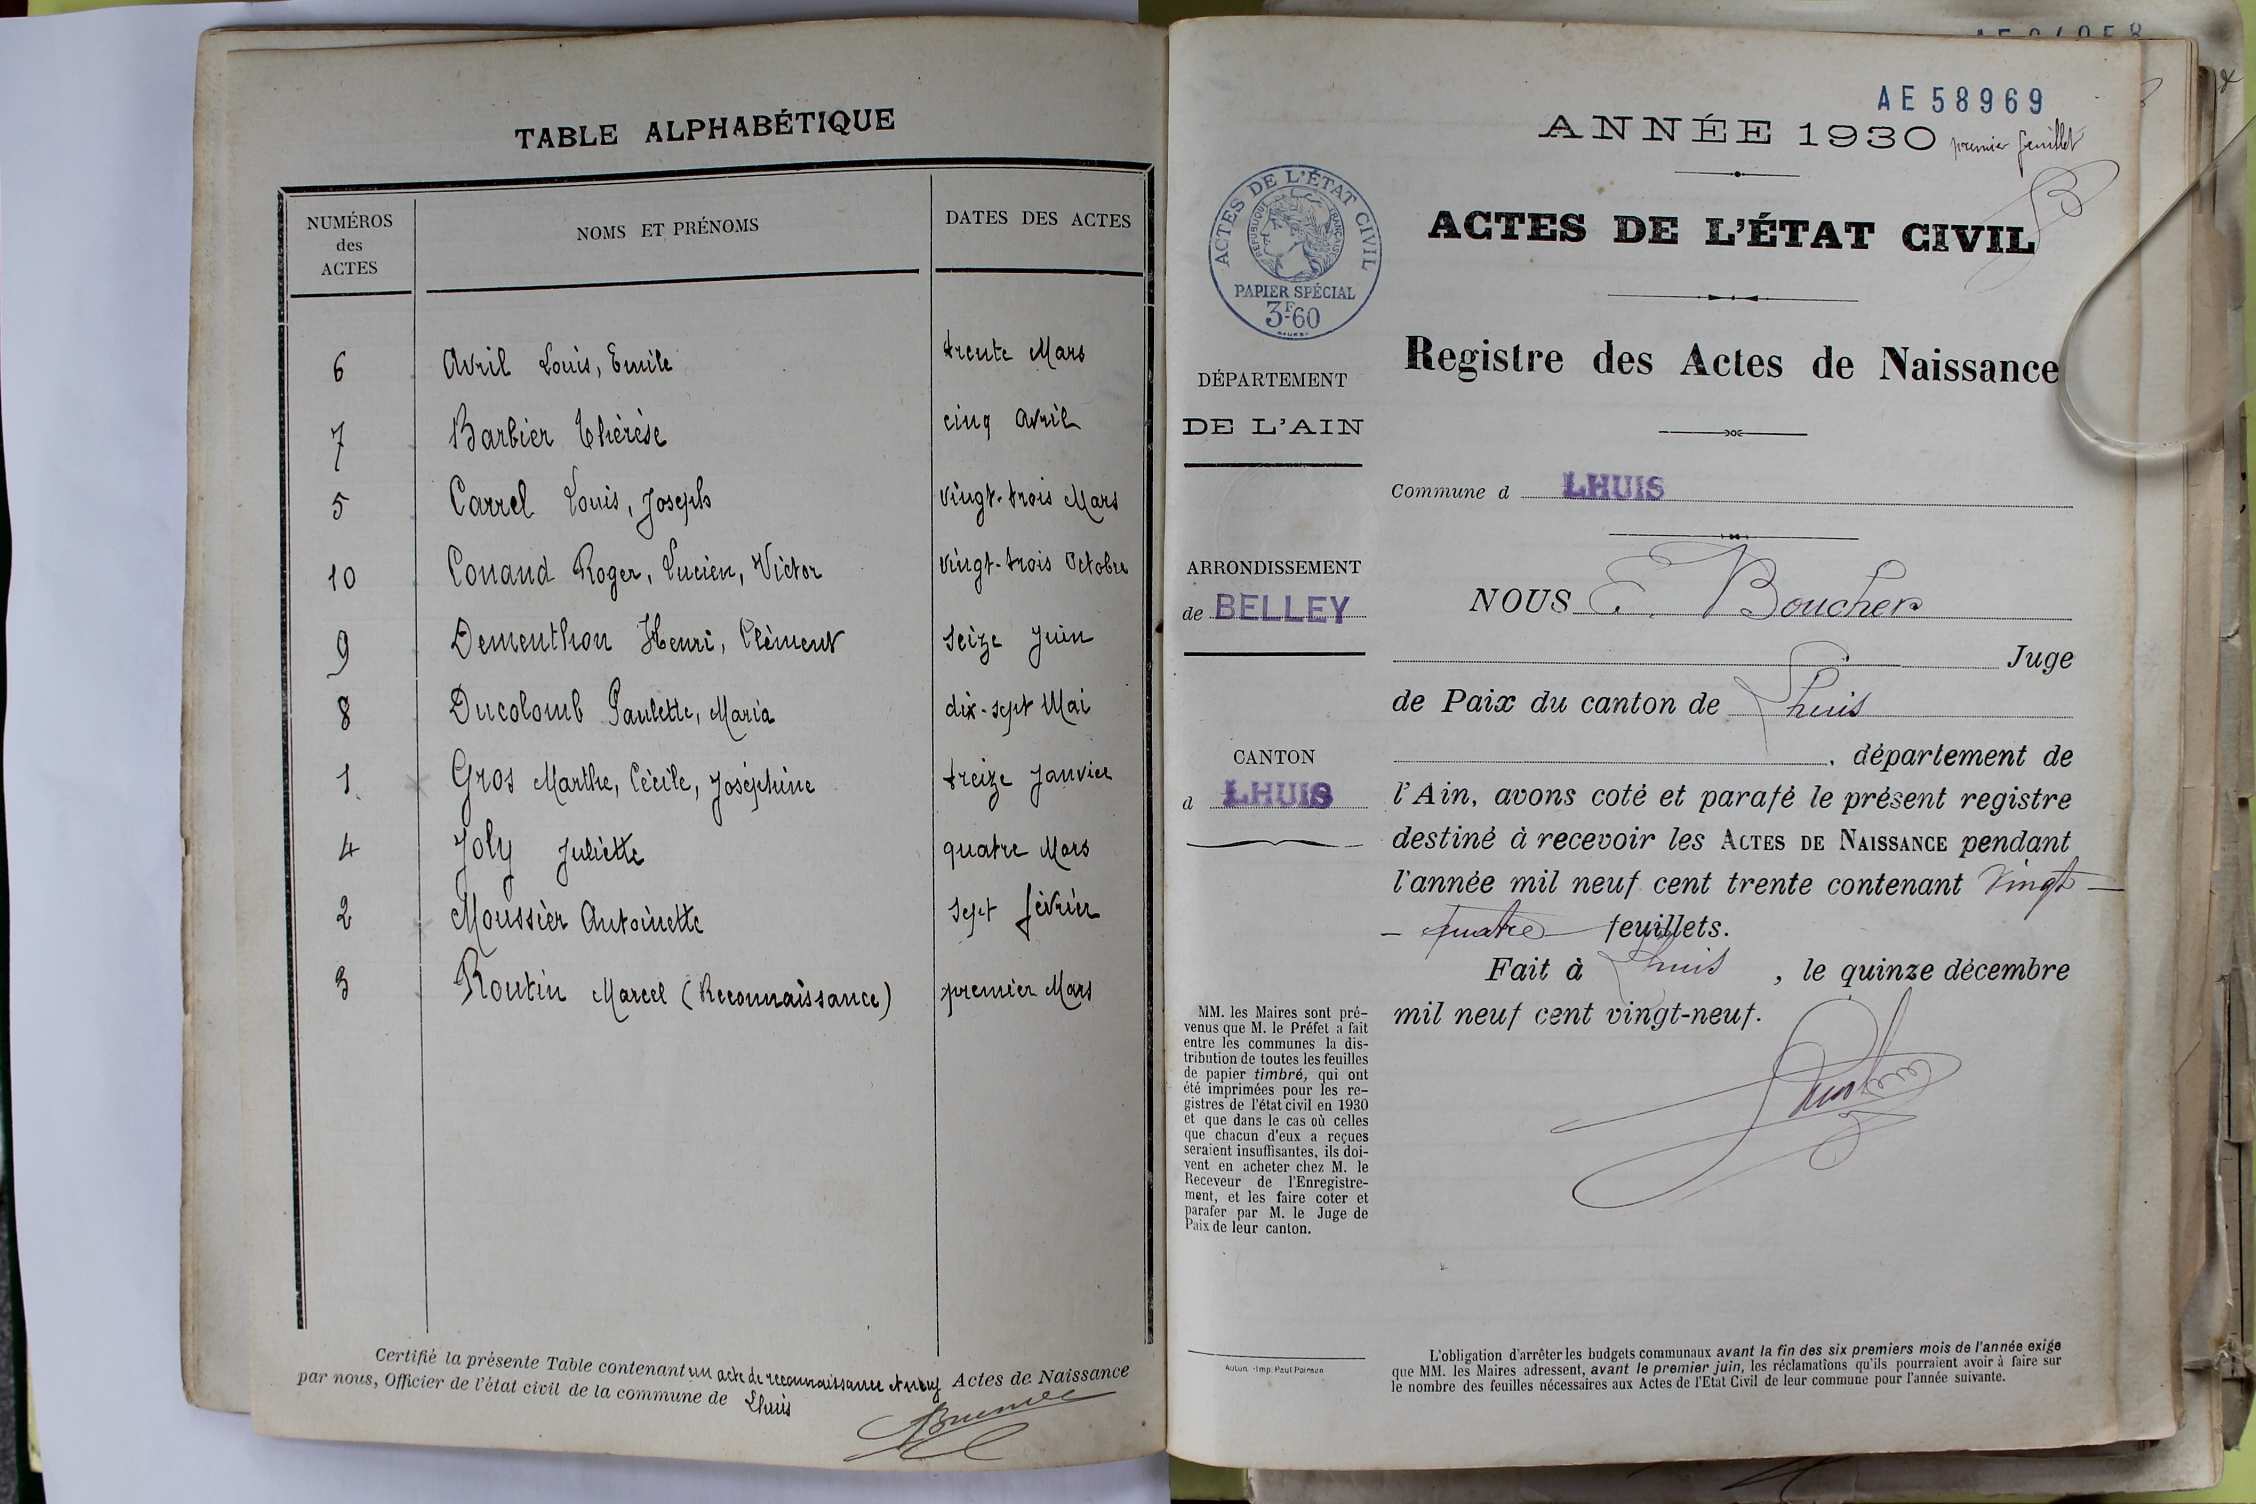 TABLE ALPHABÉTIQUE
NUMÉROS
des
ACTES
NOMS ET PRÉNOMS
DATES DES ACTES
6 Avril Louis, Emile trente Mars
7 Barbier Thérèse cinq Avril
5 Carrel Louis, Joseph vingt-trois Mars
10 Conand Roger, Lucien, Victor vingt-trois Octobre
9 Dementhon Henri, Clèment seize Juin
8 Ducolomb Paulette, Maria dix-sept Mai
1 Gros Marthe, Cécile, Joséphine treize Janvier
4 Joly Juliette quatre Mars
2 Moussier Antoinette sept février
3 Routin Marcel (Reconnaissance) premier Mars
Certifié la présente Table contenant un acte de reconnaissance et neuf Actes de Naissance
par nous, Officier de l'état civil de la commune de Lhuis
AE 58969
ANNÉE 1930 premier feuillet
ACTES DE L'ÉTAT CIVIL
RÉPUBLIQUE FRANÇAISE
PAPIER SPÉCIAL
3F60
ACTES DE L'ÉTAT CIVIL
Registre des Actes de Naissance
DÉPARTEMENT
DE L'AIN
Commune d LHUIS
ARRONDISSEMENT
de BELLEY
CANTON
d LHUIS
NOUS E. Boucher
Juge
de Paix du canton de Lhuis
, département de
l'Ain, avons coté et parafé le présent registre
destiné à recevoir les ACTES DE NAISSANCE pendant
l'année mil neuf cent trente contenant vingt-
- quatre feuillets.
Fait à Lhuis, le quinze décembre
mil neuf cent vingt-neuf.
MM. les Maires sont pré-
venus que M. le Préfet a fait
entre les communes la dis-
tribution de toutes les feuilles
de papier timbré, qui ont
été imprimées pour les re-
gistres de l'état civil en 1930
et que dans le cas où celles
que chacun d'eux a reçues
seraient insuffisantes, ils doi-
vent en acheter chez M. le
Receveur de l'Enregistre-
ment, et les faire coter et
parafer par M. le Juge de
Paix de leur canton.
Autun. - Imp. Paul Poirson
L'obligation d'arrêter les budgets communaux avant la fin des six premiers mois de l'année exige
que MM. les Maires adressent, avant le premier juin, les réclamations qu'ils pourraient avoir à faire sur
le nombre des feuilles nécessaires aux Actes de l'Etat Civil de leur commune pour l'année suivante.